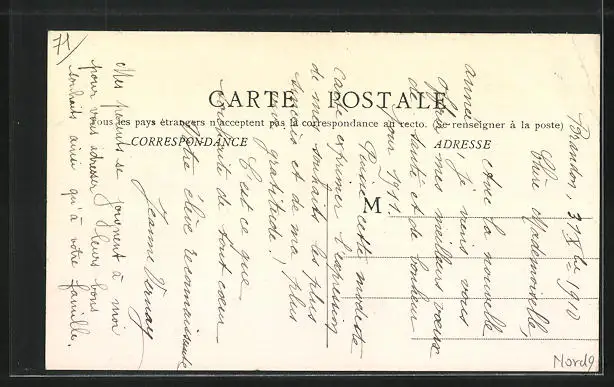 71
CARTE POSTALE
Tous les pays étrangers n'acceptent pas la correspondance au recto. (Se renseigner à la poste)
CORRESPONDANCE
ADRESSE
M
31 Xbre 1910
Chère Mademoiselle,
Avec la nouvelle
année je viens vous
offrir mes meilleurs vœux
de santé et de bonheur
pour 1911.
Puisse cette modeste
carte exprimer l'expression
de mes souhaits les plus
sincères et de ma plus
vive gratitude!
C'est ce que
souhaite de tout cœur
Votre élève reconnaissante
Jeanne
Mes parents se joignent à moi
pour vous adresser leurs bons
souhaits ainsi qu'à votre famille.
Nord9